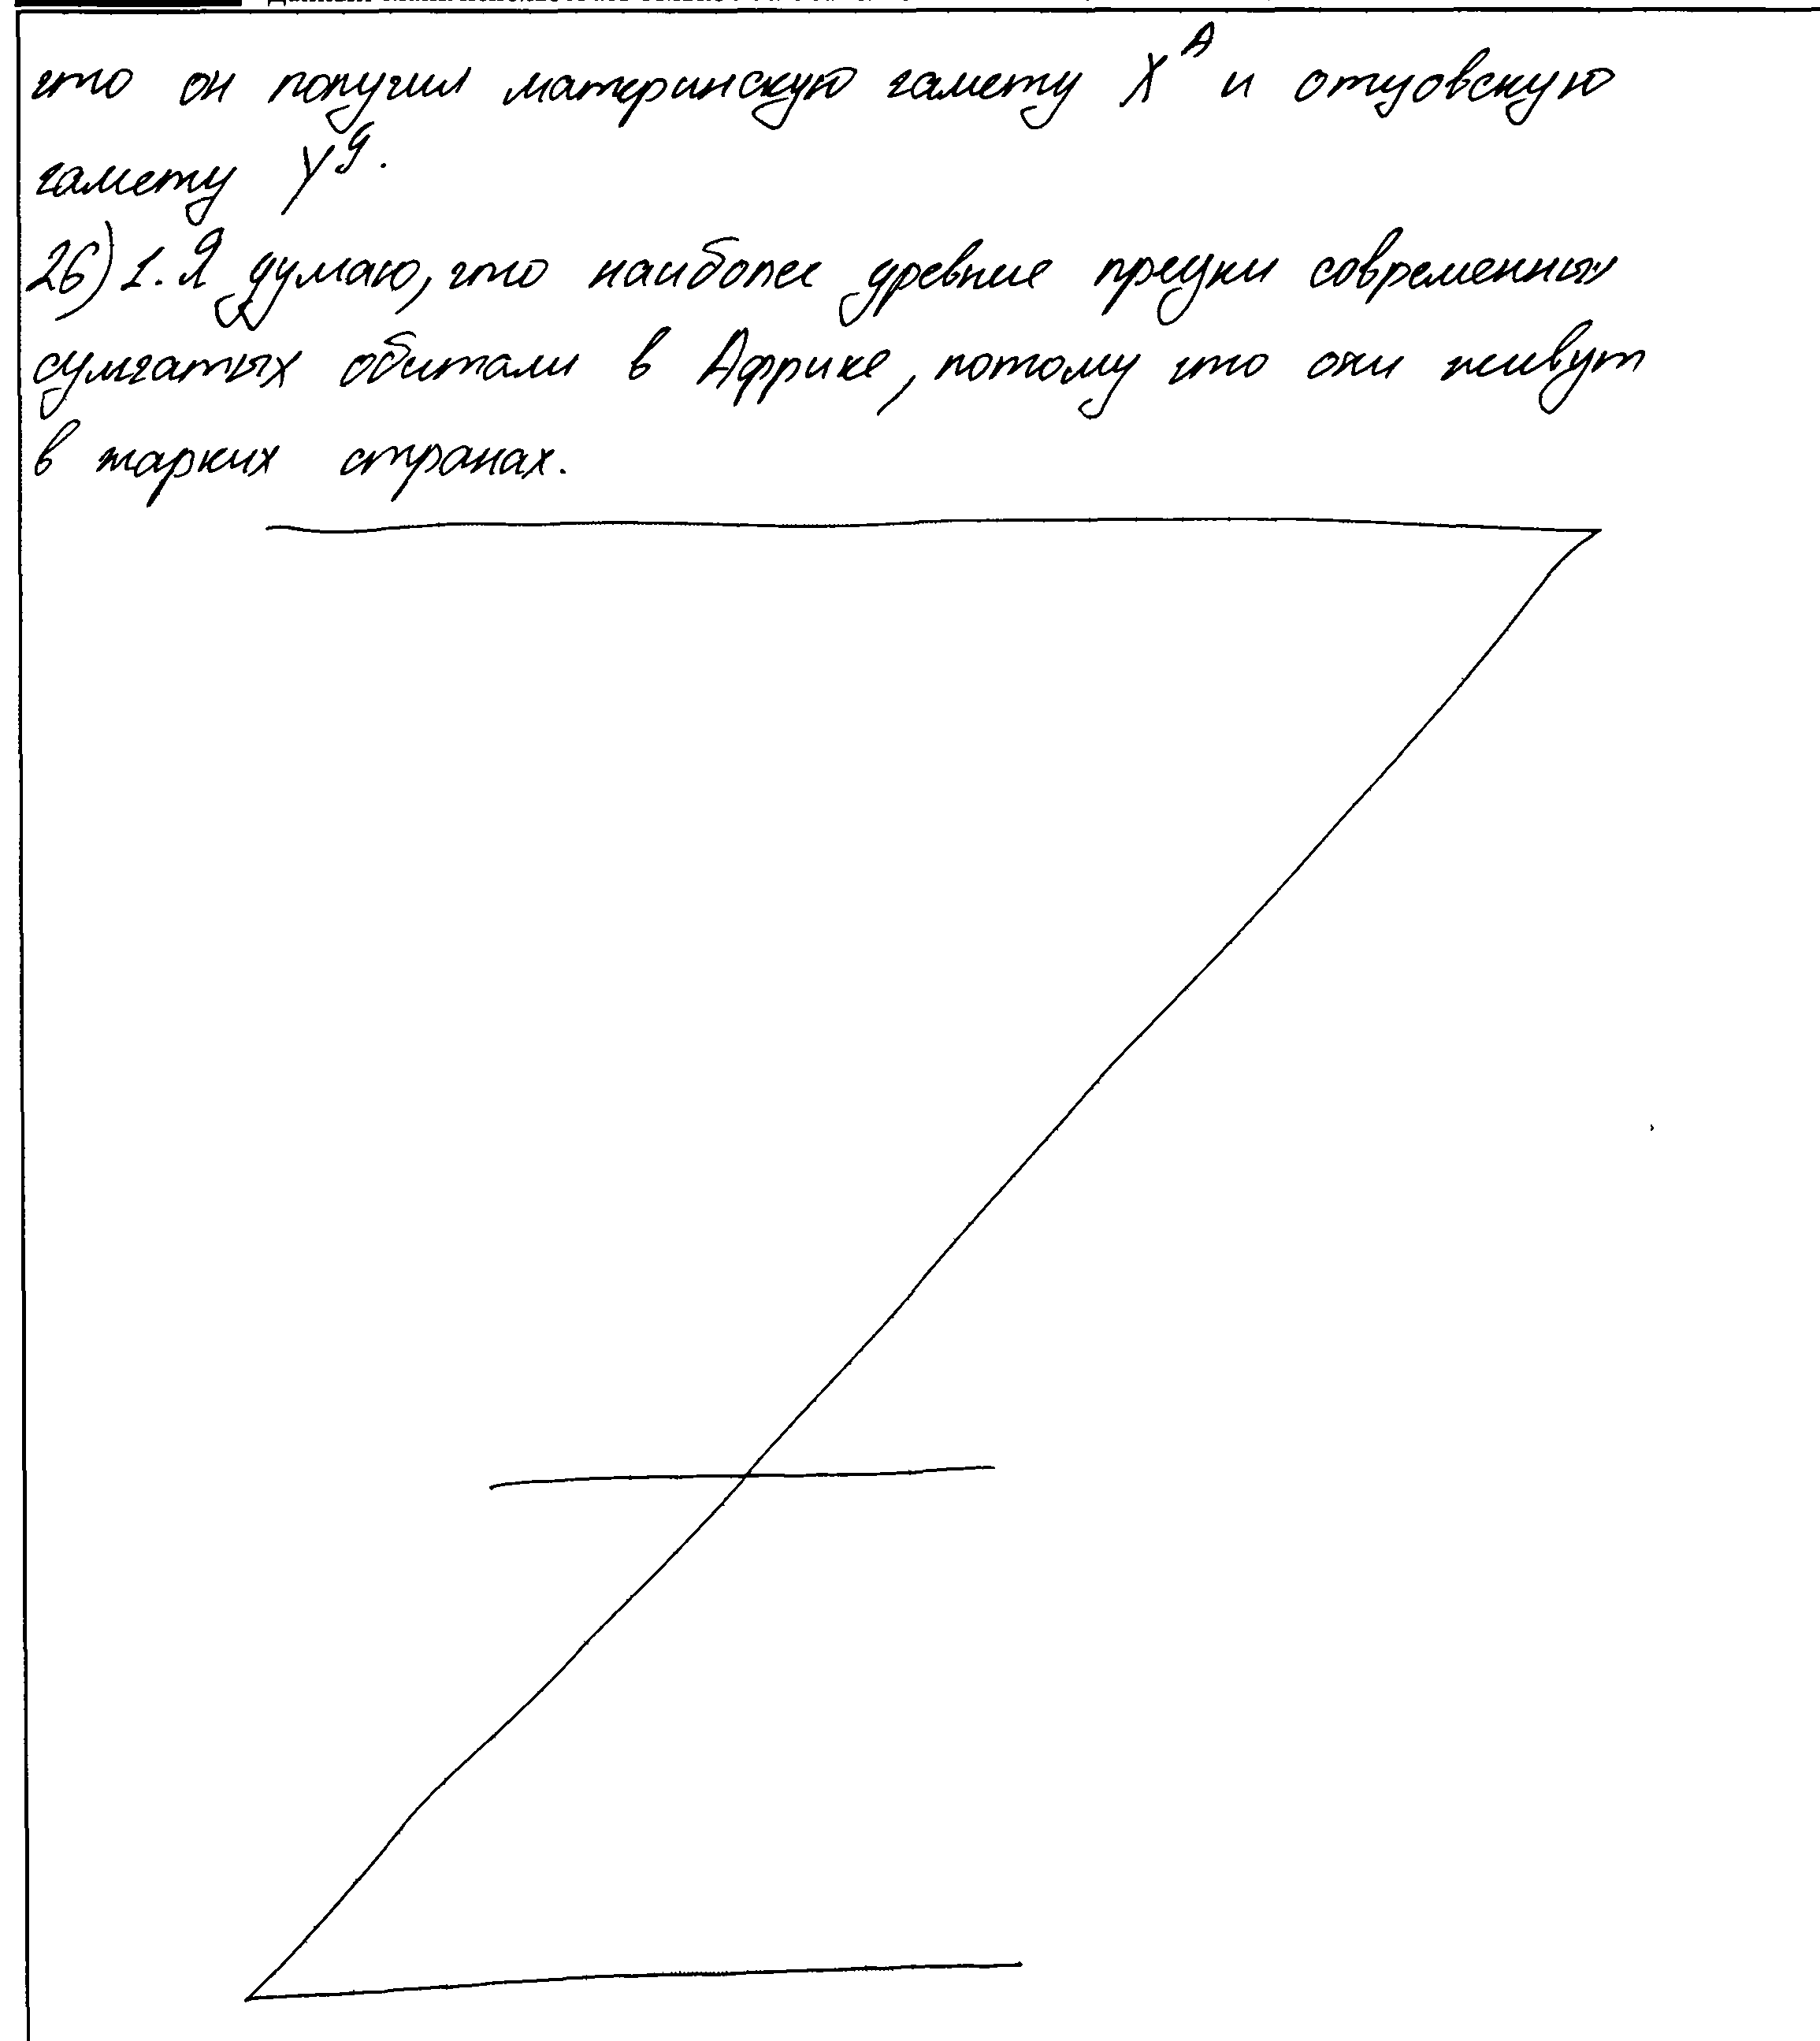 что он получил материнскую гамету X^A и отцовскую
гамету Y^g.
26) 1. Я думаю, что наиболее древние предки современных
сумчатых обитали в Африке, потому что они живут
в жарких странах.